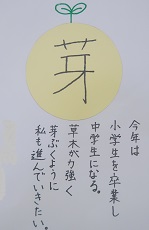 芽
今年は
小学生を卒業し
中学生になる。
草木が力強く
芽ぶくように
私も進んでいきたい。